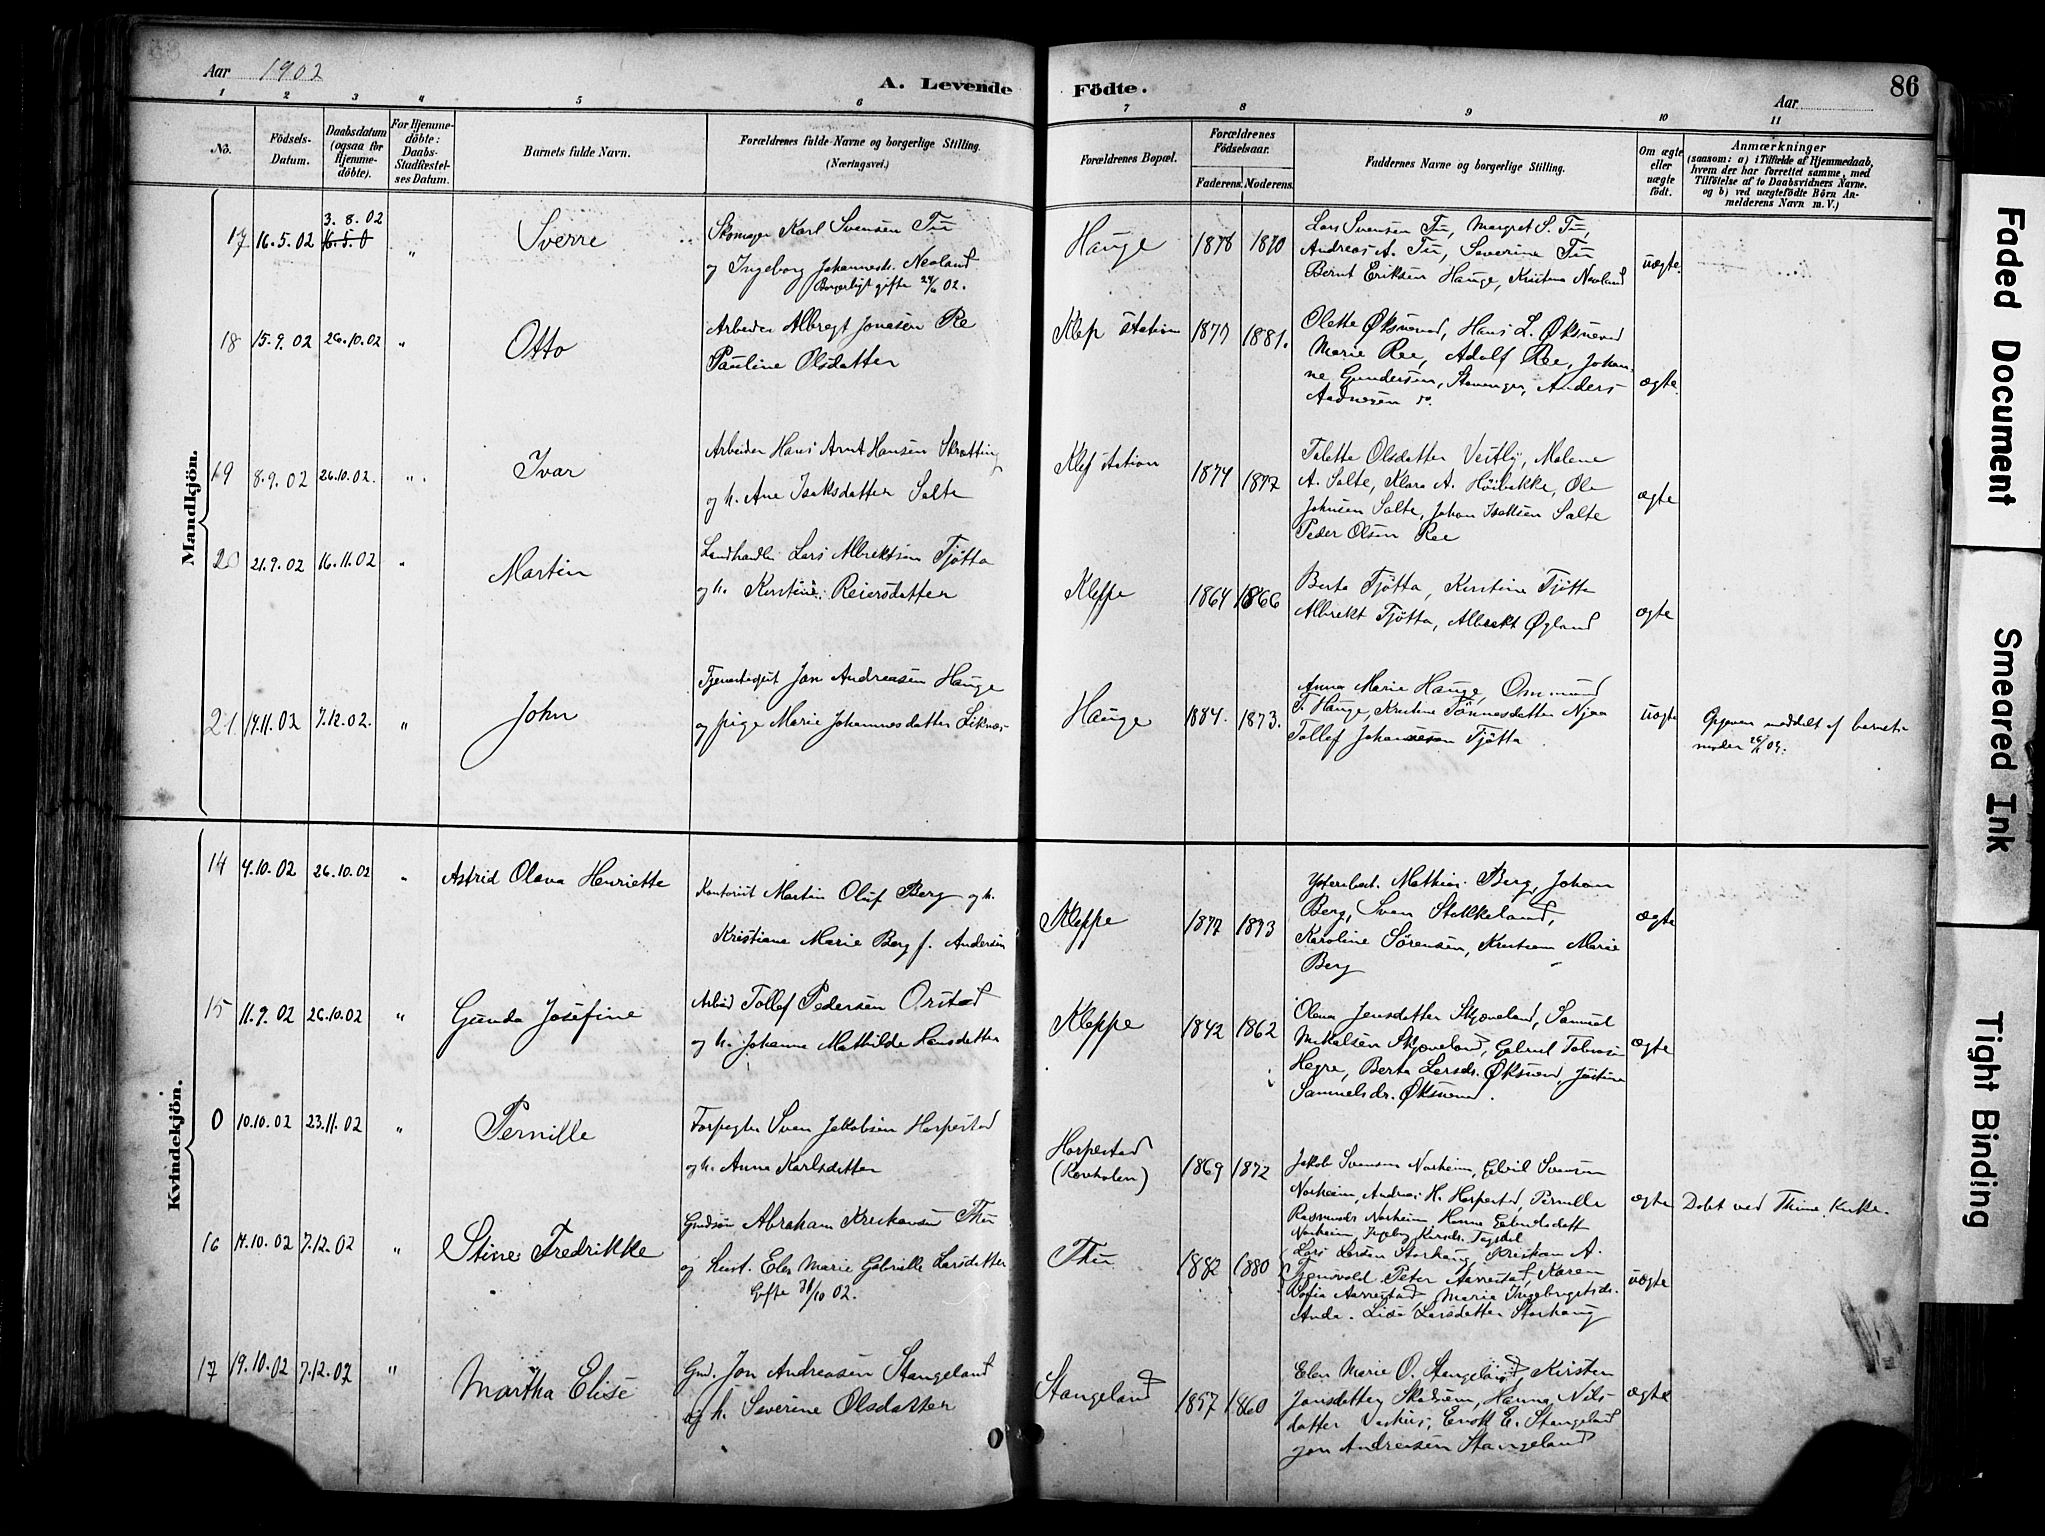 Aar 1902
A. Levende Födte.
Aar
86
1 2 3 4 5 6 7 8 9 10 11
No.
Födsels-Datum.
Daabsdatum (ogsaa for Hjemme-döbte).
For Hjemme-döbte: Daabs-Stadfæstel-ses Datum.
Barnets fulde Navn.
Forældrenes fulde Navne og borgerlige Stilling. (Næringsvei.)
Forældrenes Bopæl.
Forældrenes Födselsaar.
Faderens. Moderens.
Faddernes Navne og borgerlige Stilling.
Om ægte eller uægte födt.
Anmærkninger
(saasom: a) i Tilfælde af Hjemmedaab, hvem der har forrettet samme, med Tilföielse af to Daabsvidners Navne. og b) ved uægtefödte Börn Anmelderens Navn m. V.)
Mandkjön.
17 16.5.02 3.8.02 16.5.0 " Sverre
Skomager Karl Svensen Tu
og Ingeborg Johannesdr. Neoland
Borgerligt gifte 29/6 02.
Hauge 1878 1870
Lars Svensen Tu, Margret S. Tu,
Andreas A. Tu, Severine Tu
Bernt Eriksen Hauge, Kristine Neoland
uægte.
18 15.9.02 26.10.02 " Otto
Arbeider Albregt Jonasen Re
Pauline Olsdatter
Klep station 1877 1881.
Olette Øksnevad, Hans L. Øksnevad
Marie Ree, Adolf Ree, Johan-
ne Gundersen, Stavanger, Anders
Aadnesen do.
ægte.
19 8.9.02 26.10.02. " Ivar
Arbeider Hans Arnt Hansen Skratting
og h. Ane Isaksdatter Salte
Klep station 1874 1877
Talette Olsdatter Vestly, Malene
A. Salte, Klara A. Høibakke, Ole
Johnsen Salte, Johan Isaksen Salte
Peder Olsen Ree
ægte
20 21.9.02 16.11.02 " Martin
Landhandler Lars Albrektsen Tjøtta
og h. Kirstine Reiersdatter
Kleppe 1864 1866
Berta Tjøtta, Kirstine Tjøtta
Albrekt Tjøtta, Albrekt Øgland
ægte
21. 17.11.02 7.12.02. " John
Tjenestegut Jon Andreasen Hauge
og pige Marie Johannesdatter Liknes
Hauge 1884. 1873.
Anna Marie Hauge, Ommund
T. Hauge, Kristine Tønnesdatter Njaa
Tollef Johannesen Tjøtta
uægte
Opgaven meddelt af barnets
moder
Kvindekjön.
14 4.10.02 26.10.02 " Astrid Olava Henriette
Kontorist Martin Oluf Berg og h.
Kristiane Marie Berg f. Andersen
Kleppe 1877 1873
Mathias Berg, Johan
Berg, Sven Stokkeland,
Karoline Sørensen, Kristiane Marie
Berg
ægte
15 11.9.02 26.10.02 " Gunda Josefine
Arbeid Tollef Pedersen Orstad
og h. Johanne Mathilde Hansdatter
Kleppe 1842 1862
Olena Jensdatter Skjæveland, Samuel
Mikalsen Skjæveland, Gabriel Tobiasen
Hegre, Berta Larsdr. Øksnevad, Justine
Samuelsdr. Øksnevad.
ægte
0 10.10.02 23.11.02 " Pernille
Forpagter Sven Jakobsen Horpestad
og h. Anna Karlsdatter
Horpestad
1869 1872
Jakob Svensen Norheim, Edvil Svensen
Norheim, Andreas H. Horpestad, Pernille
Rasmusdr. Norheim, Hanne Gabrielsdatt
Norheim, Ingeborg
ægte
Døbt ved Thime Kirke.
16 14.10.02 7.12.02 " Stine Fredrikke
Gmdsøn Abraham Kristiansen Thu
og hust. Elen Marie Gabrielle Larsdatter
Gifte 31/10 02.
Thu 1882 1880
Lars Larsen Storhaug, Kristian A.
Peter Aarrestad, Karen
Sofia Aarrestad, Maria Ingebregtsdr.
Anda. Lisa Larsdatter Storhaug
uægte
17 19.10.02 7.12.02 " Martha Elise
Gmd. Jon Andreasen Stangeland
og h. Severine Olsdatter
Stangeland 1857 1860
Elen Marie O. Stangeland, Kirsten
Jonsdatter Skadsem, Hanna Nils-
datter Vashus, Enok E. Stangeland
Jon Andreasen Stangeland
ægte
Faded Document
Smeared Ink
Tight Binding